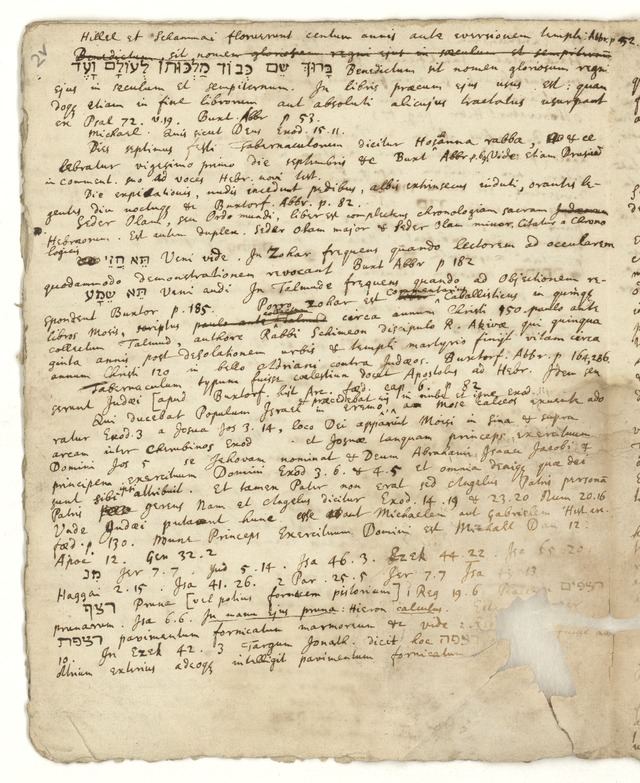 2v
Hillel et Schammai floruerunt centum annis ante eversionem templi. Abbr. p 52
Benedictum sit nomen gloriosum regni ejus in sæculum et sempiternum
בָּרוּךְ שֵׁם כְּבוֹד מַלְכוּתוֹ לְעוֹלָם וָעֶד Benedictum sit nomen gloriosum regni
ejus in sæculum et sempiternum. In libris precum ejus usus est: quan
doqz etiam in fine librorum aut absoluti alicujus tractatus usurpant
ex Psal 72. v.19. Buxt. Abbr p 53.
Michael. Quis sicut Deus Exod. 15.11.
Dies septimus festi Tabernaculorum dicitur Hosanna rabba, & ce
lebratur vigesimo primo die septembris &c Buxt Abbr. Vide etiam Drusiū
in comment. suo ad voces Hebr. novi Test.
Die expiationis, nudis incedunt pedibus, albis extrinsecus induti, orantes le-
gentes, diu noctuqz &c Buxtorf. Abbr. p. 82.
Seder Olam, seu Ordo mundi, liber est complectens chronologiam sacram
Hebræorum. Est autem duplex. Seder Olam major & Seder Olam minor. Citatur a Chrono
logicis
תא חזי Veni vide. In Zohar frequens quando lectorem ad ocularem
quodammodo demonstrationem revocant Buxt Abbr p 182
תא שמע Veni audi In Talmude frequens quando ad Objectionem re-
spondent Buxtor p. 185. Porro Zohar est commentarius Cabballisticus in quinqz
libros Mosis, scriptus circa annum Christi 150 paulo ante
collectum Talmud, authore Rabbi Schimeon discipulo R. Akivæ qui quinqua
ginta annis post desolationem urbis & templi martyrio finijt vitam circa
annum Christi 120 in bello Adriani contra Judæos. Buxtorf. Abbr. p 164, 286.
Tabernaculum typum fuisse cælestium docet Apostolus ad Hebr. Idem sen
serunt Judæi [apud Buxtorf. hist Arc. fœd. cap 6. p 82
Qui ducebat Populum Israel in eremo & præcedebat eos in nube et igne Exod. Mose calceos exuente ado
ratur Exod. 3 a Josua Jos 3.14, loco Dei apparuit Mosi in Sina & supra
arcam inter Cherubinos Exod et Josuæ tanquam princeps exercituum
Domini Jos 5 se Jehovam nominat & Deum Abrahami Isaaci Jacobi; &
principem exercituum Domini Exod 3.6. & 4.5 et omnia deniqz quæ dei
sunt sibi attribuit. Et tamen Pater non erat sed Angelus Patris personā
Patris gerens Nam et Angelus dicitur Exod. 14.19 & 23.20 Num 20.16
Unde Judæi putant hunc aut Michaelem aut Gabrielem Hist arc.
fœd. p. 130. Princeps Exercituum Domini est Michael Dan 12:
Apoc 12. Gen 32.2
Jer 7.7. Jud 5.14. Isa 46.3. Ezek 44.22 . Isa 65.20.
Haggai 2.15. Isa 41.26. 2 Par. 25.5 Jer 7.7 Isa
רצף Pruna [vel potius fornicem pistorium] 1 Reg 19.6 רצפים
prunarum. Isa 6.6. In manu ejus pruna: Hieron calculus.
רצפת pavimentum fornicatum marmoreum &c vide
10. In Ezek 42.3 Targum Jonath. dicit hoc רצפה
Atrium exterius adeoqz intelligit pavimentum fornicatum